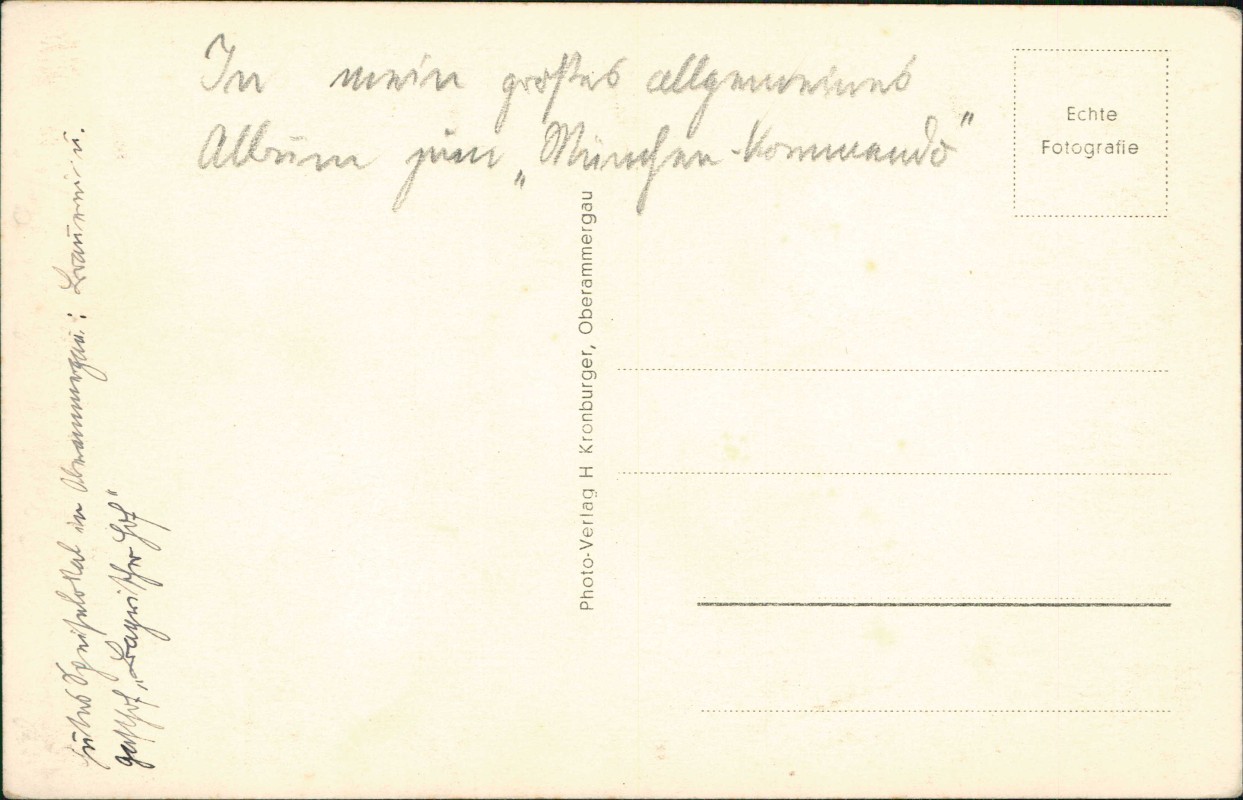 In mein großes allgemeines
Album zum „München-Kommando"
Echte
Fotografie
Photo-Verlag H Kronburger, Oberammergau
Gutes Speiselokal in Oberammergau: Brauerei u.
Gasthof „Bayrischer Hof"